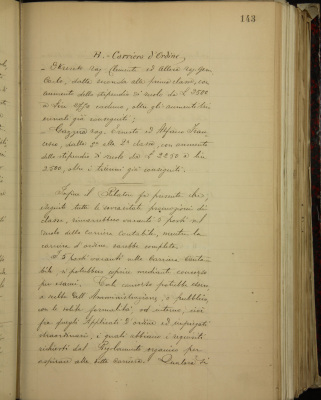 143
B. - Carriera d'Ordine
Clemente ed Allievi rag. Gas
Carlo, dalla seconda alla prima classe, con
aumento dello stipendio di ruolo da £ 2500
a lire caduno, oltre gli aumenti ses
sennali già conseguiti;
- rag. Ernesto ed Alfano Fran
cesco, dalla 3ª alla 2ª classe, con aumento
dello stipendio di ruolo da £ 2250 a lire
2500, oltre i già conseguiti.
Infine l'Istitutore fa presente che,
eseguite tutte le promozioni di
classe, rimarrebbero vacanti 5 posti nel
ruolo della carriera contabile, mentre la
carriera d'ordine sarebbe completa.
I 5 posti vacanti nella carriera conta
bile, si potrebbero coprire mediante concorso
per esami. Tale concorso potrebbe essere
o nelle dell'Amministrazione, o pubblico,
con le solite formalità, od interno, cioè
fra gli Applicati d'ordine ed impiegati
straordinari, i quali abbiano i requisiti
richiesti dal Regolamento organico per
aspirare alla detta carriera. di